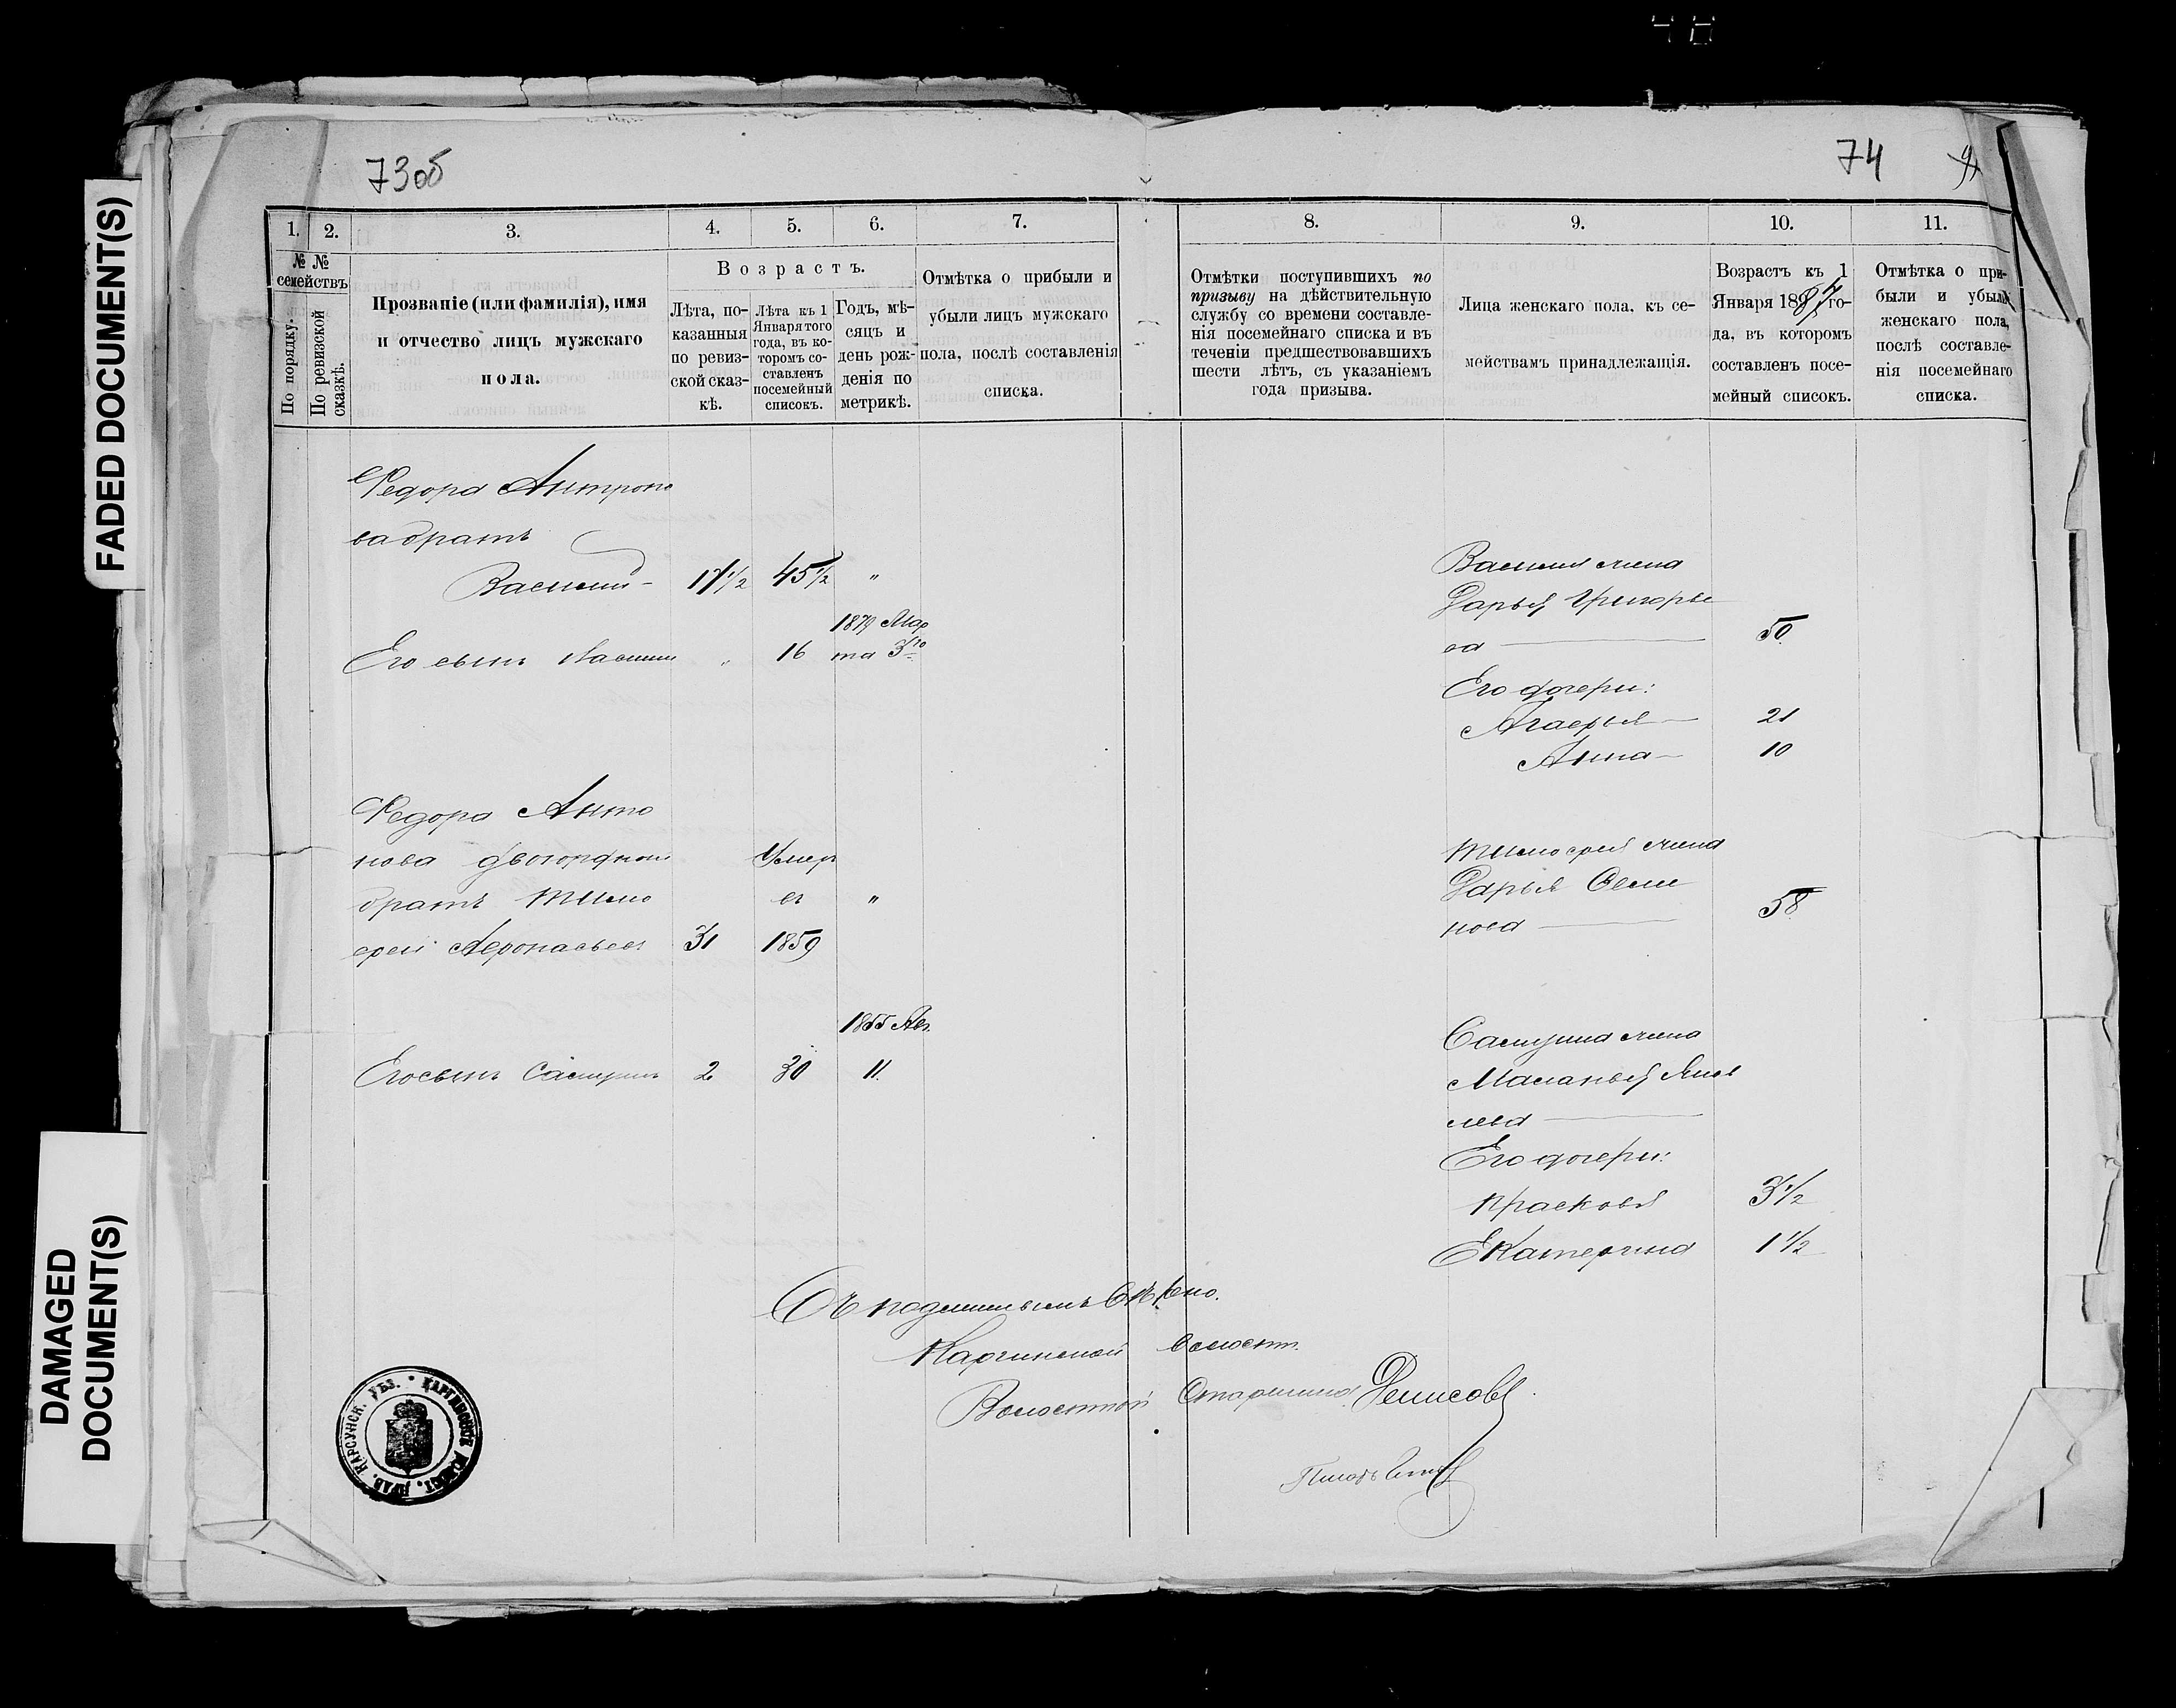 FADED DOCUMENT(S)
DAMAGED
DOCUMENT(S)
73об
74
1.
2.
3.
4.
5.
6.
7.
8.
9.
10.
11.
№ №
семействъ
По порядку.
По ревизской
сказкѣ.
Прозваніе (или фамилія), имя
и отчество лицъ мужскаго
пола.
Возрастъ.
Лѣта, по-
казанныя
по ревиз-
ской сказ-
кѣ.
Лѣта къ 1
Января того
года, въ ко-
торомъ со-
ставленъ
посемейный
списокъ.
Годъ, мѣ-
сяцъ и
день рож-
денія по
метрикѣ.
Отмѣтка о прибыли и
убыли лицъ мужскаго
пола, послѣ составленія
списка.
Отмѣтки поступившихъ по
призыву на дѣйствительную
службу со времени составле-
нія посемейнаго списка и въ
теченіи предшествовавшихъ
шести лѣтъ, съ указаніемъ
года призыва.
Лица женскаго пола, къ се-
мействамъ принадлежащія.
Возрастъ къ 1
Января 1887 го-
да, въ которомъ
составленъ посе-
мейный списокъ.
Отмѣтка о при-
были и убыли
женскаго пола,
послѣ составле-
нія посемейнаго
списка.
Федора Антроно
ва братъ
Василий 17 1/2 45 1/2 "
Василия жена
Дарья Григорье
ва 50
1879 Мар
Его сынъ " 16 та 3го
Его дочери:
Агафья 21
Анна 10
Федора Анто
нова двоюродной Умеръ
братъ Тимо въ "
фей Афонасьевъ 31 1859
Тимофея жена
Дарья Семе
нова 58
1855 Авг.
Его сынъ Самуилъ 2 30 11.
Самуила жена
Маланья Яков
лева
Его дочери:
Прасковья 3 1/2
Екатерина 1 1/2
Съ подлиннымъ вѣрно.
Каргинской волости
Волостной Старшина Денисовъ
Писарь
КАРСУНСК. УѢЗ. КАРГИНСКОЕ ВОЛОСТ. ПРАВ.